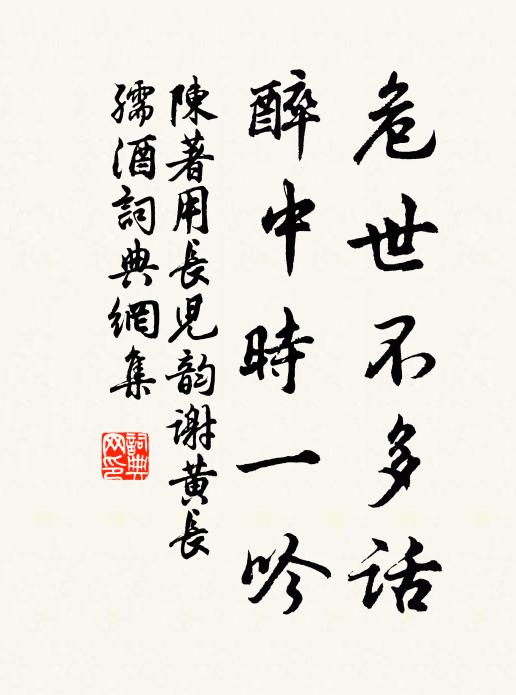 危世不多話
醉中時一吟
陳著用長兒韵謝黃長
孺酒詞典網集
詞典网印